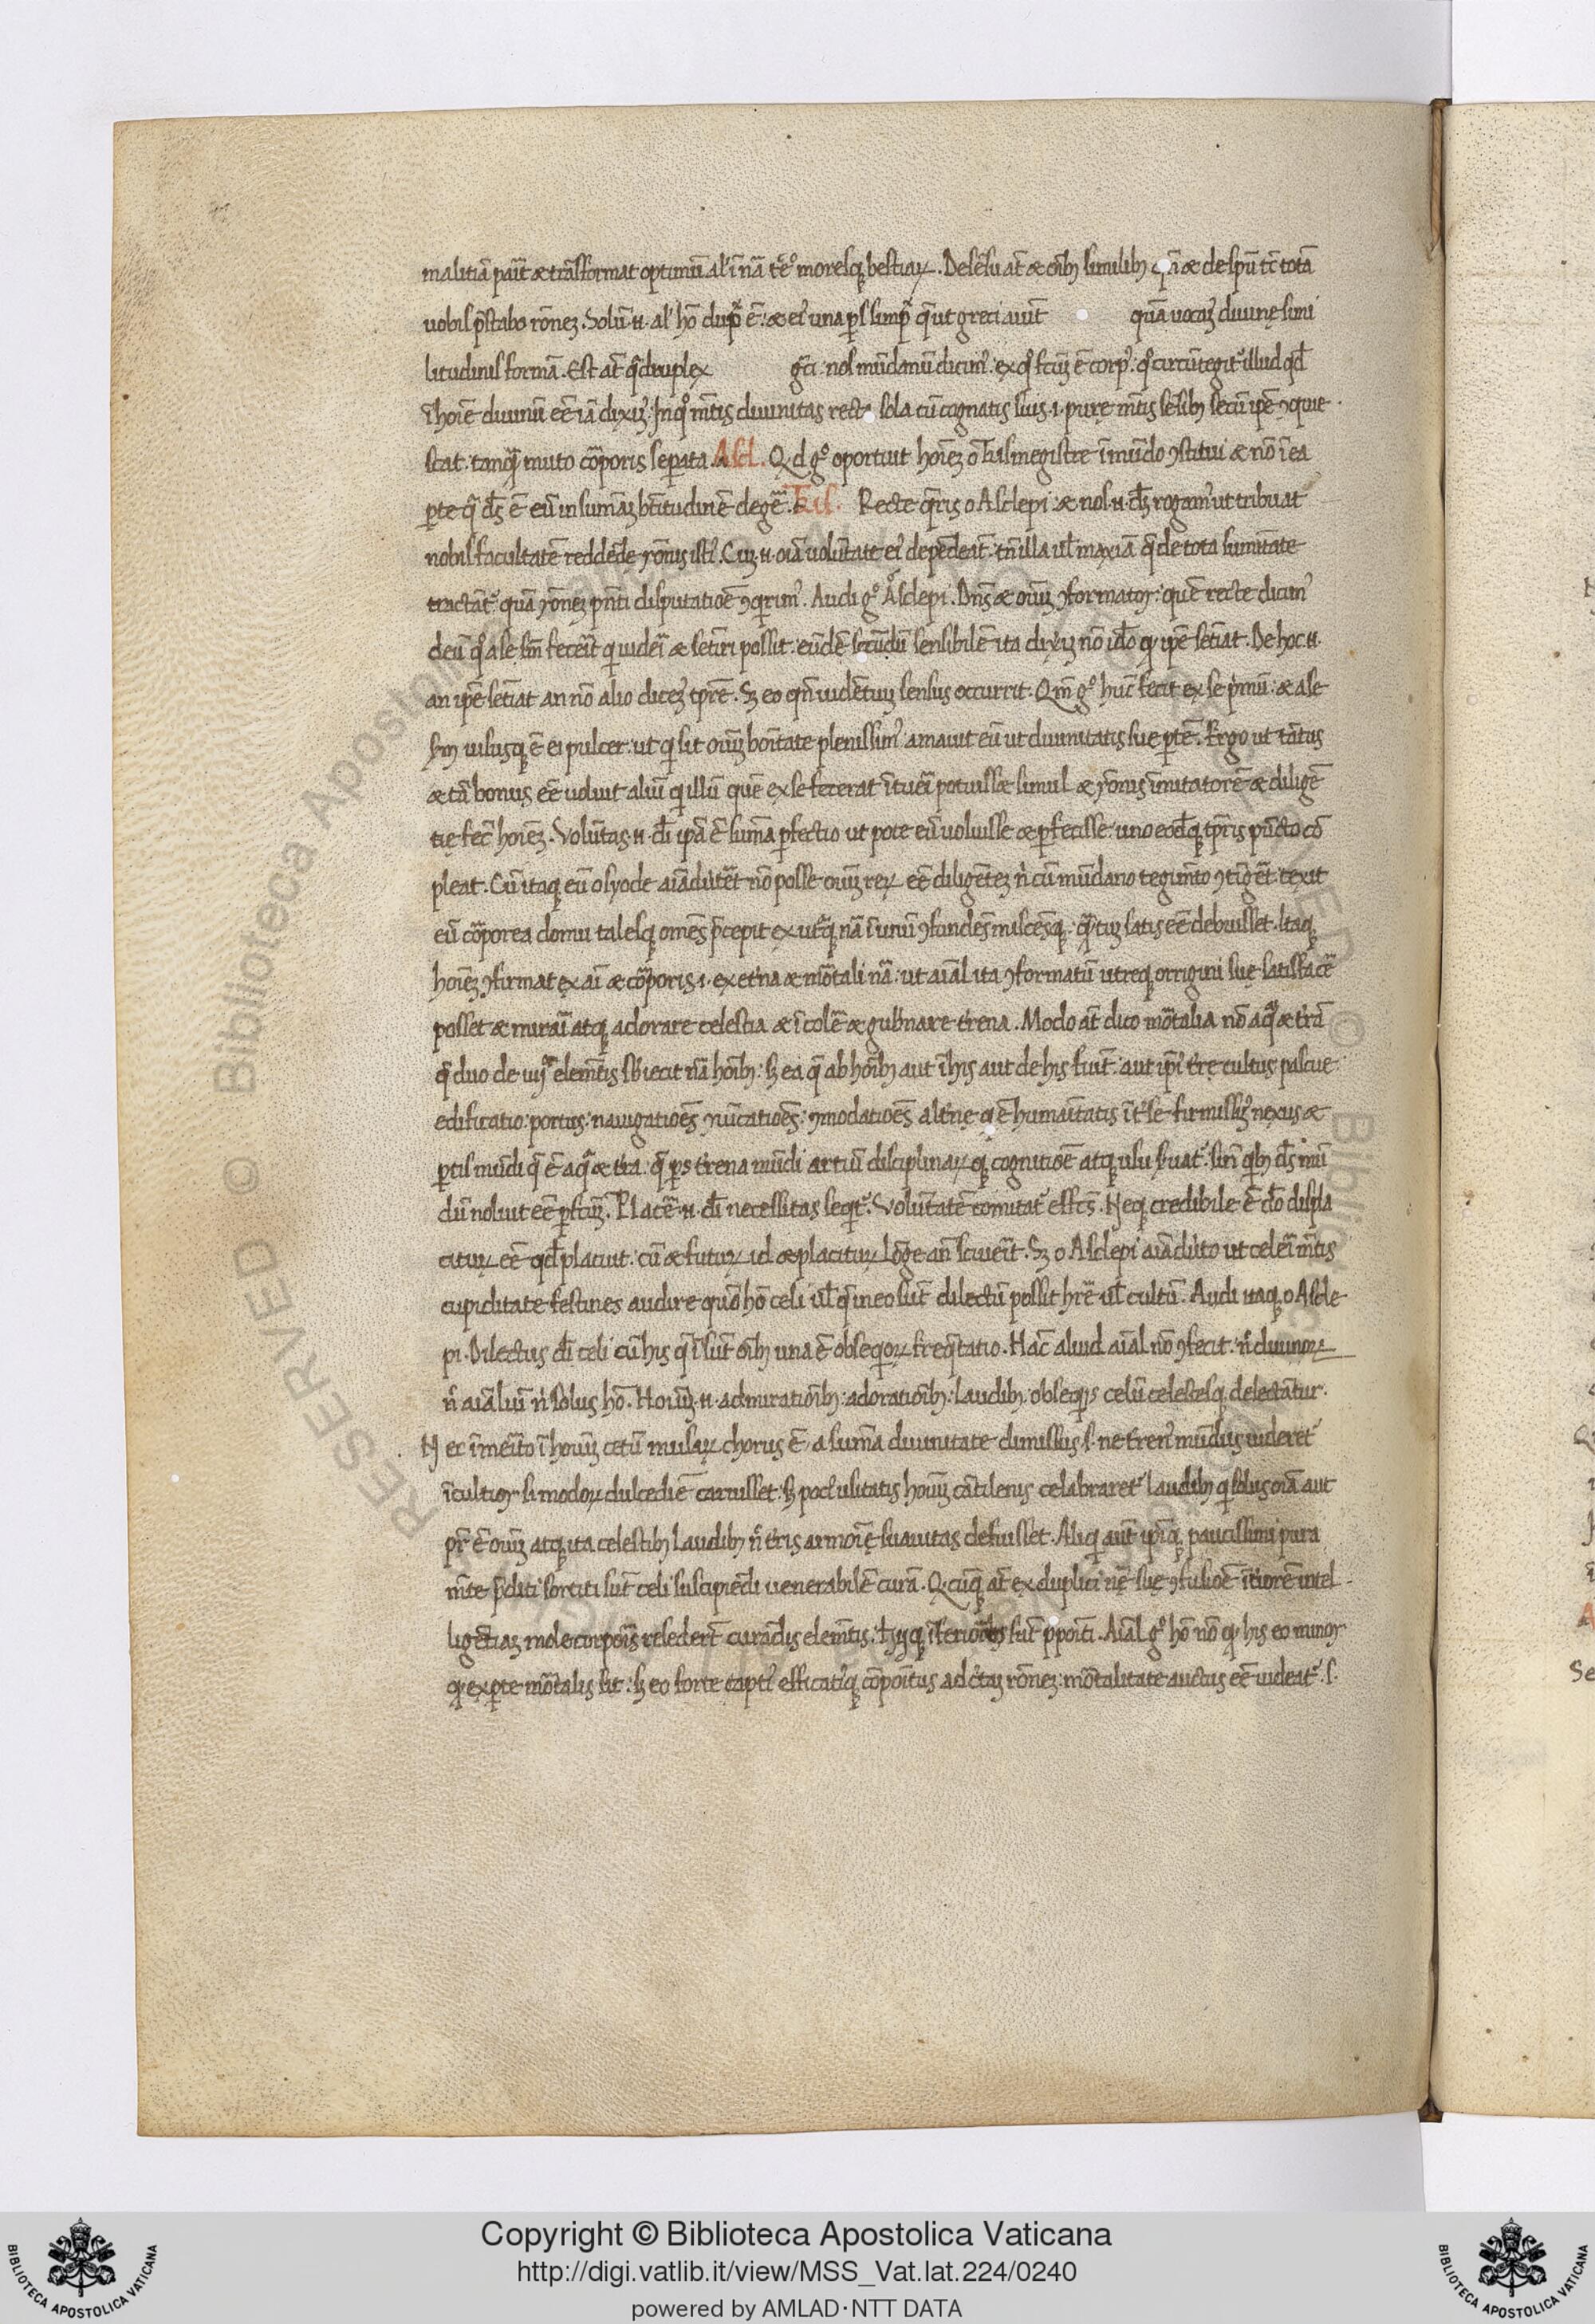 malitiā parit & trāsformat optimū al' ī nā fe mores q; bestiaꝝ. De sēsu at̄ & oīb; similib; & de spū tc̄ tota
uobis p̄stabo rōnez. Solū .n. al' hō dup̄ ē: & ei' una pars simp̄ q̄ ut greci aiūt quā uocam' diuinę simi
litudinis formā. Est at̄ q̄druplex nos mūdanū dicim'. ex q° fc̄m ē corp'. q° circūtegit' illud qd̄
ī hoīe diuinū eē iā dixim'. In q° mētis diuinitas sola cū cognatis suis .i. purę mētis sēsib; secū ipē ꝯque
scat. tanq̄ muro corporis separata. Ascl. Qd g° oportuit hoīez o T'ismegistre ī mūdo ꝯstitui & nō ī ea
parte q̄ ds̄ ē eū in sūma b̄titudinē degē. T'is. Recte q̄ris o Asclepi: & nos .n. dm̄ rogam' ut tribuat
nobis facultatē reddēde rōnis isti'. Cum .n. oīa uolūtate ei' depēdeāt: tn̄ illa ul' maxīa q̄ de tota sūmitate
tractāt' quā rōnez p̄nti disputatiōe ꝯqrim'. Audi g° Asclepi. Dn̄s & oīum ꝯformator: quē recte dicim'
deū q° a se sm̄ fecerit q uideri & sētiri possit. eūdē secūdū sensibilē ita dixim nō ido q; ipē sētiat. De hoc .n.
an ipē sētiat an nō alio dicem' tp̄re. S; eo qm̄ uidētium sensus occurrit. Qm̄ g° hūc fecit ex se p̄mū: & a se
sm̄ uisusq; ē ei pulcer: ut q sit oīum bonitate plenissim' amauit eū ut diuinitatis suę partē. Ergo ut tātus
& tā bonus eē uoluit aliū q illū quē ex se fecerat ītueri potuisse simul & rōnis imitatorē & diligē
tię fec̄ hoīez. Volūtas .n. dī ipā ē sūma perfectio ut pote cū uoluisse & perfecisse: uno eodēq; tp̄ris pūcto cō
pleat. Cū itaq; eū osyode aīaduertet nō posse oīum reꝝ eē diligētez nī cū mūdano tegmīto ꝯtigeret texit
eū corporea domu talesq; omēs p̄cepit ex utraq; nā ī unū ꝯfundēs miscēsq; q̄tum satis eē debuisset. Itaq;
hoīez ꝯfirmat ex aī & corporis .i. ex etn̄a & mortali nā: ut aīal ita ꝯformatū utreq; orrigini suę satisfacē
posset & mirari atq; adorare celestia & īcolē & gubnare terrena. Modo at̄ dico mortalia nō aquā & t'rā
q̄ duo de iiijor elemētis sbiecit nā hoīb; s; ea q̄ ab hoīb; aut ī his aut de his fiūt: aut ipī' t'rę cultus pascue
edificatio: portus: nauigatiōes ꝯūicatiōes: ꝯmodatiōes alt'nę q ē humanitatis ītr se firmissim' nexus &
partis mūdi q̄ ē aqua & t'ra. q̄ pars t'rena mūdi artiū disciplinaꝝq; cognitiōe atq; usu seruat'. sine qb; ds̄ mū
dū noluit eē perfc̄m. Placē .n. dī necessitas seqt'. Volūtatē comitat' effc̄s. Neq; credibile ē dō displi
cituꝝ eē qd̄ placuit: cū & futuꝝ id & placituꝝ lōge an̄ sciuerit. S; o Asclepi aīaduto ut celeri mētis
cupiditate festines audire quō hō celi ul' q̄ in eo sūt dilectū possit hr̄e ul' cultū. Audi itaq; o Ascle
pi. Dilectus dī celi cū his q̄ ī sūt oīb; una ē obsequioꝝ freq̄tatio. Hāc aliud aīal nō ꝯfecit: n diuinoꝝ
n̄ aīaliū nī solus hō. Hoīum .n. admirationib; adoratiōib; laudib; obsequijs celū celestesq; delectātur.
Nec īmerito ī hoīum cetū musaꝝ chorus ē a sūma diuinitate dimissus .s. ne terren' mūdus uideret'
īcultior si modoꝝ dulcediē caruisset: s; poc' usitatis hoīum cātilenis celabraret' laudib; q solus oīa aut
pr̄ ē oīum atq; ita celestib; laudib; n̄ t'ris armonię suauitas defuisset. Aliq aut ipīq; paucissimi pura
mēte p̄diti sortiti sūt celi suscipiēdi uenerabilē curā. Qcūq; at̄ ex duplici nę suę ꝯfusiōe īt'iorē intel
ligētiaz mole corporis resederūt curādis elemētis hijsq; īferiorib; sūt p̄positi. Aīal g° hō nō q; his eo minor
q; ex parte mortalis sit: s; eo forte aptī' efficati'q; cōpositus ad c'tam rōnez: mortalitate auctus eē uideat'. s.
Copyright © Biblioteca Apostolica Vaticana
http://digi.vatlib.it/view/MSS_Vat.lat.224/0240
powered by AMLAD·NTT DATA